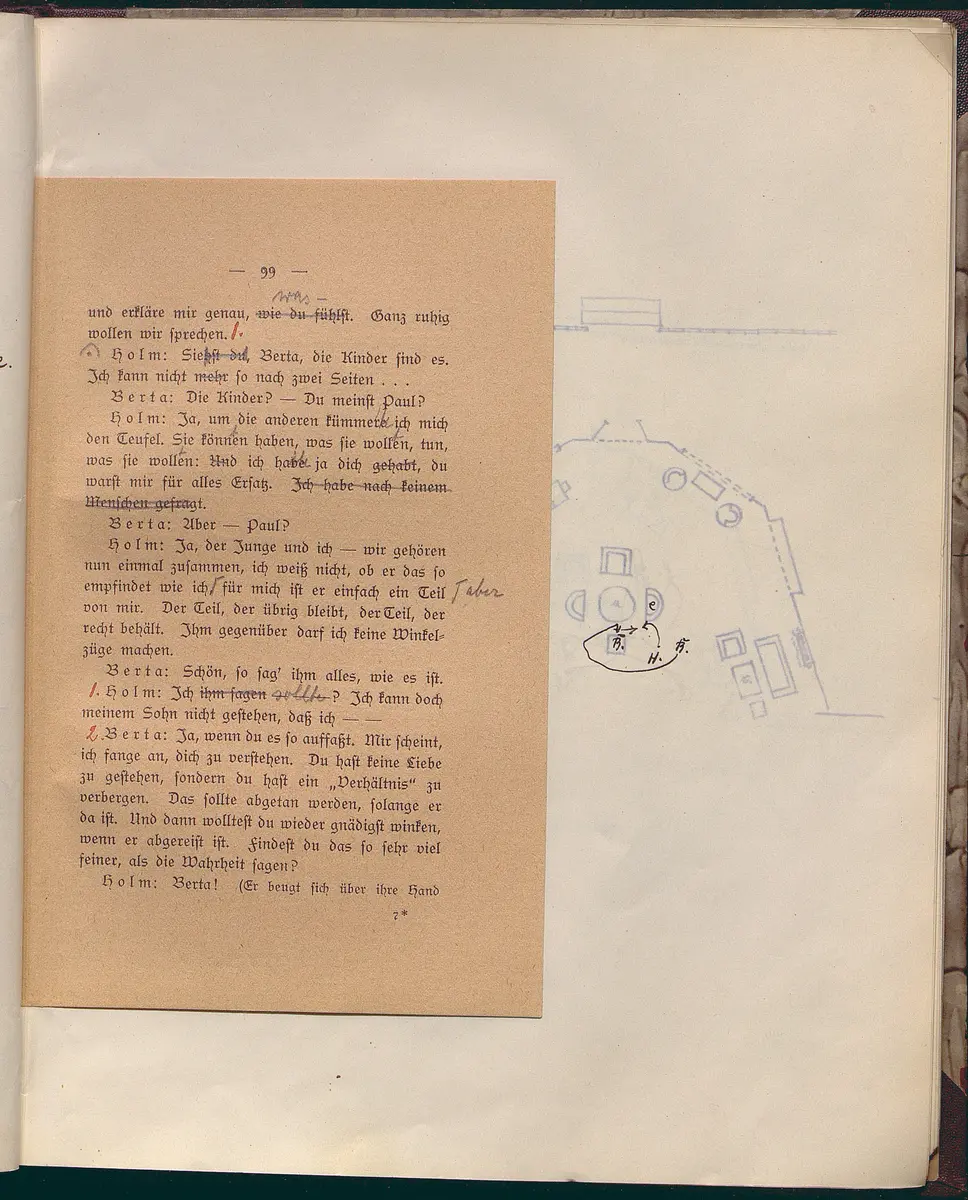 — 99 —
was —
und erkläre mir genau, wie du fühlst. Ganz ruhig
wollen wir sprechen. 1.
Holm: Siehst du, Berta, die Kinder sind es.
Ich kann nicht mehr so nach zwei Seiten . . .
Berta: Die Kinder? — Du meinst Paul?
Holm: Ja, um die anderen kümmere ich mich
den Teufel. Sie können haben, was sie wollen, tun,
was sie wollen: Und ich habe ja dich gehabt, du
warst mir für alles Ersatz. Ich habe nach keinem
Menschen gefragt.
Berta: Aber — Paul?
Holm: Ja, der Junge und ich — wir gehören
nun einmal zusammen, ich weiß nicht, ob er das so
empfindet wie ich, für mich ist er einfach ein Teil aber
von mir. Der Teil, der übrig bleibt, der Teil, der
recht behält. Ihm gegenüber darf ich keine Winkel=
züge machen.
Berta: Schön, so sag' ihm alles, wie es ist.
1. Holm: Ich ihm sagen sollte? Ich kann doch
meinem Sohn nicht gestehen, daß ich — —
2. Berta: Ja, wenn du es so auffaßt. Mir scheint,
ich fange an, dich zu verstehen. Du hast keine Liebe
zu gestehen, sondern du hast ein „Verhältnis“ zu
verbergen. Das sollte abgetan werden, solange er
da ist. Und dann wolltest du wieder gnädigst winken,
wenn er abgereist ist. Findest du das so sehr viel
feiner, als die Wahrheit sagen?
Holm: Berta! (Er beugt sich über ihre Hand
7*
a
e
B.
H.
B.